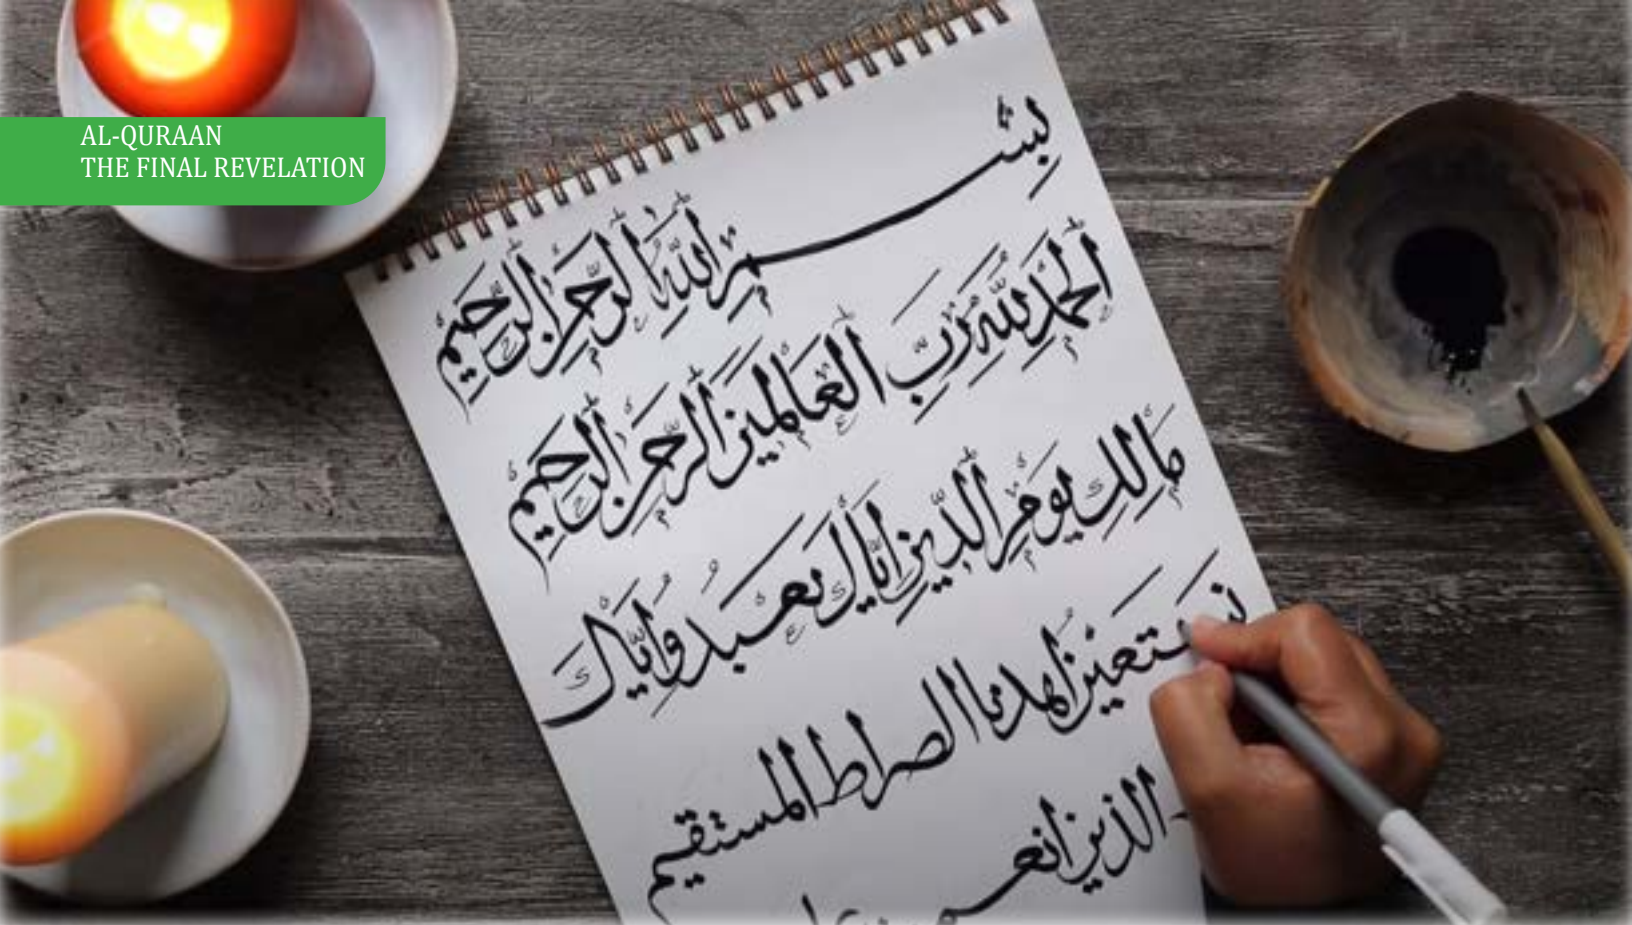 AL-QURAAN
THE FINAL REVELATION
بِسْمِ اللَّهِ الرَّحْمٰنِ الرَّحِيْمِ
اَلْحَمْدُ لِلَّهِ رَبِّ الْعَالَمِيْنَ الرَّحْمٰنِ الرَّحِيْمِ
مَالِكِ يَوْمِ الدِّيْنِ اِيَّاكَ نَعْبُدُ وَاِيَّاكَ
نَسْتَعِيْنُ اهدنا الصراط المستقيم
الذين انعم